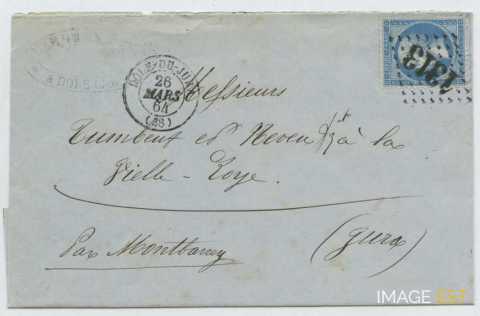 À DOLE
DOLE-DU-JURA
26
MARS
64
(38)
1313
Messieurs
et Neveu à la
Vielle-Loye.
(Jura)
Par Montbarrey
IMAGE EST